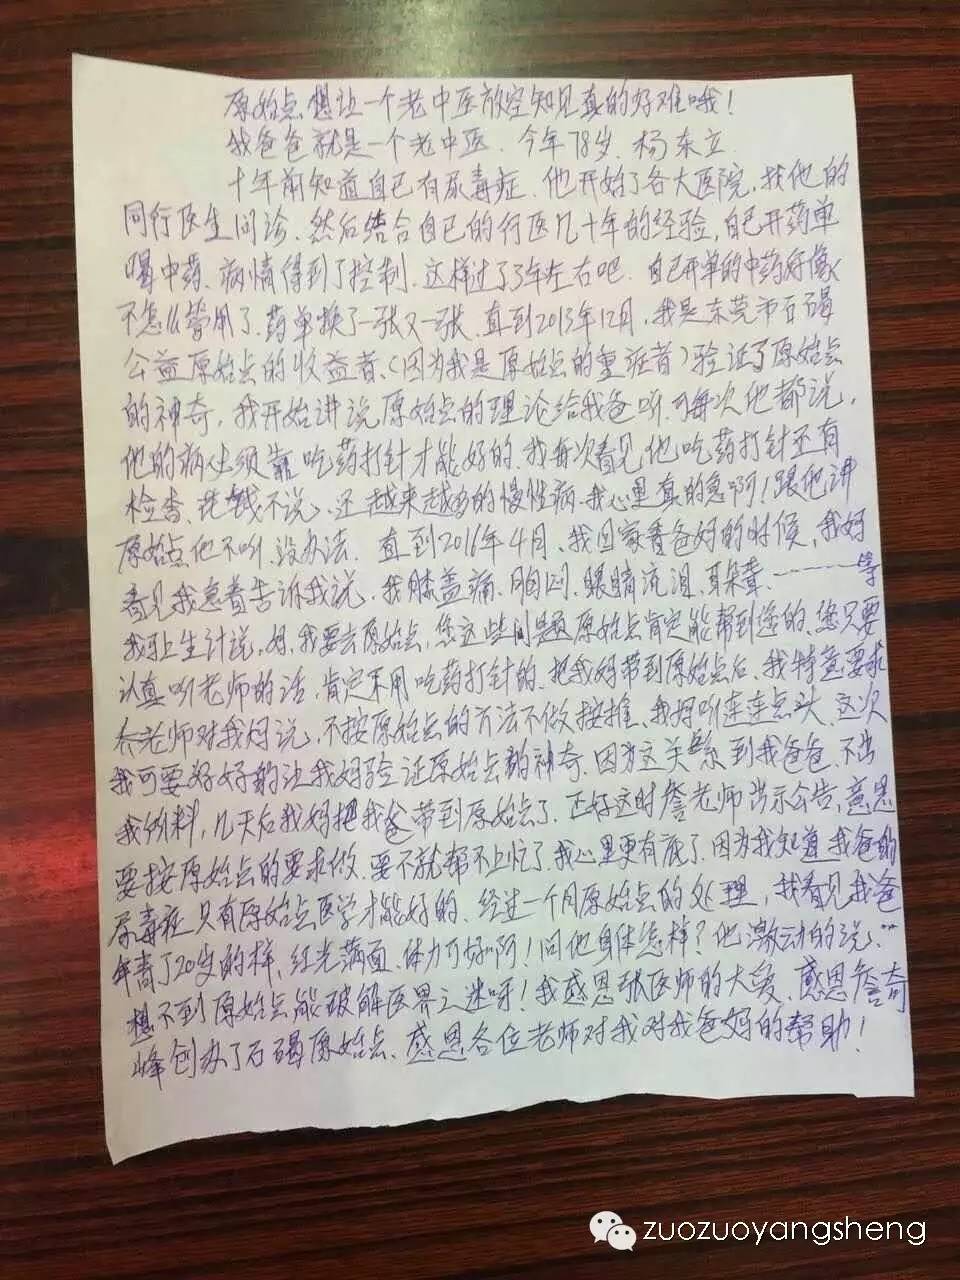 原始点想让一个老中医放空知见真的好难哦！
我爸爸就是一个老中医．今年78岁．杨东立．
十年前知道自已有尿毒症．他开始了各大医院．找他的
同行医生问诊．然后结合自己的行医几十年的经验，自己开药单
喝中药．病情得到了控制．这样过了3年左右吧．自己开单的中药好像
不怎么管用了．药单换了一张又一张．直到2013年12月，我是东莞市石碣
公益原始点的收益者、（因为我是原始点的重症者）验证了原始点
的神奇，我开始讲说原始点的理论给我爸听．可每次他都说，
他的病必须靠吃药打针才能好的．我每次看见他吃药打针还有
检查、花钱不说、还越来越多的慢性病．我心里真的急啊！跟他讲
原始点他不听．没办法．直到2016年4月、我回家看爸妈的时候，我妈
看见我急着告诉我说．我膝盖痛．胸闷．眼睛流泪．耳朵聋．————等
我马上生计说，妈，我要去原始点，您这些问题原始点肯定能帮到您的．您只要
认真听老师的话，肯定不用吃药打针的．把我妈带到原始点后．我特意要求
乔老师对我妈说，不按原始点的方法不做按推．我妈听连连点头．这次
我可要好好的让我妈验证原始点的神奇．因为这关系到我爸爸．不出
我所料，几天后我妈把我爸带到原始点了．正好这时詹老师出示公告，意思
要按原始点的要求做．要不就帮不上忙了．我心里更有底了．因为我知道我爸的
尿毒症只有原始点医学才能好的．经过一个月原始点的处理，我看见我爸
年青了20岁的样，红光满面．体力可好啊！问他身体怎样？他激动的说、“
想不到原始点能破解医界之迷呀！我感恩张医师的大爱．感恩詹奇
峰创办了石碣原始点、感恩各位老师对我对我爸妈的帮助！
zuozuoyangsheng